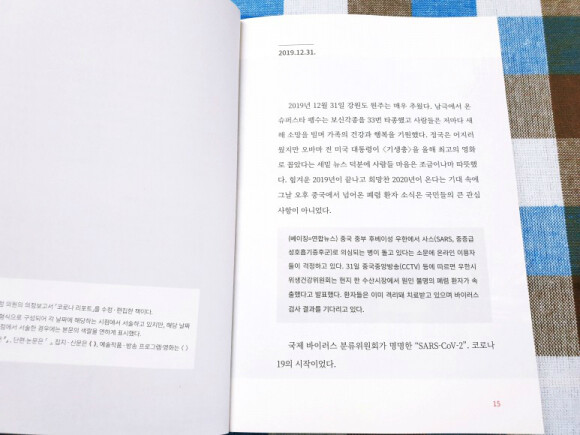 의원의 의정보고서 "코로나 리포트』를 수정·편집한 책이다.
형식으로 구성되어 각 날짜에 해당하는 시점에서 서술하고 있지만, 해당 날짜
점에서 서술한 경우에는 본문의 색깔을 연하게 표시했다.
단편·논문은 「 」, 잡지·신문은 《 》, 예술작품·방송 프로그램·영화는 〈 〉
2019.12.31.
2019년 12월 31일 강원도 원주는 매우 추웠다. 남극에서 온
슈퍼스타 펭수는 보신각종을 33번 타종했고 사람들은 저마다 새
해 소망을 빌며 가족의 건강과 행복을 기원했다. 정국은 어지러
웠지만 오바마 전 미국 대통령이 〈기생충〉을 올해 최고의 영화
로 꼽았다는 세밑 뉴스 덕분에 사람들 마음은 조금이나마 따뜻했
다. 힘겨운 2019년이 끝나고 희망찬 2020년이 온다는 기대 속에
그날 오후 중국에서 넘어온 폐렴 환자 소식은 국민들의 큰 관심
사항이 아니었다.
(베이징=연합뉴스) 중국 중부 후베이성 우한에서 사스(SARS, 중증급
성호흡기증후군)로 의심되는 병이 돌고 있다는 소문에 온라인 이용자
들이 걱정하고 있다. 31일 중국중앙방송(CCTV) 등에 따르면 우한시
위생건강위원회는 현지 한 수산시장에서 원인 불명의 폐렴 환자가 속
출했다고 발표했다. 환자들은 이미 격리돼 치료받고 있으며 바이러스
검사 결과를 기다리고 있다.
국제 바이러스 분류위원회가 명명한 "SARS-CoV-2", 코로나
19의 시작이었다.
15